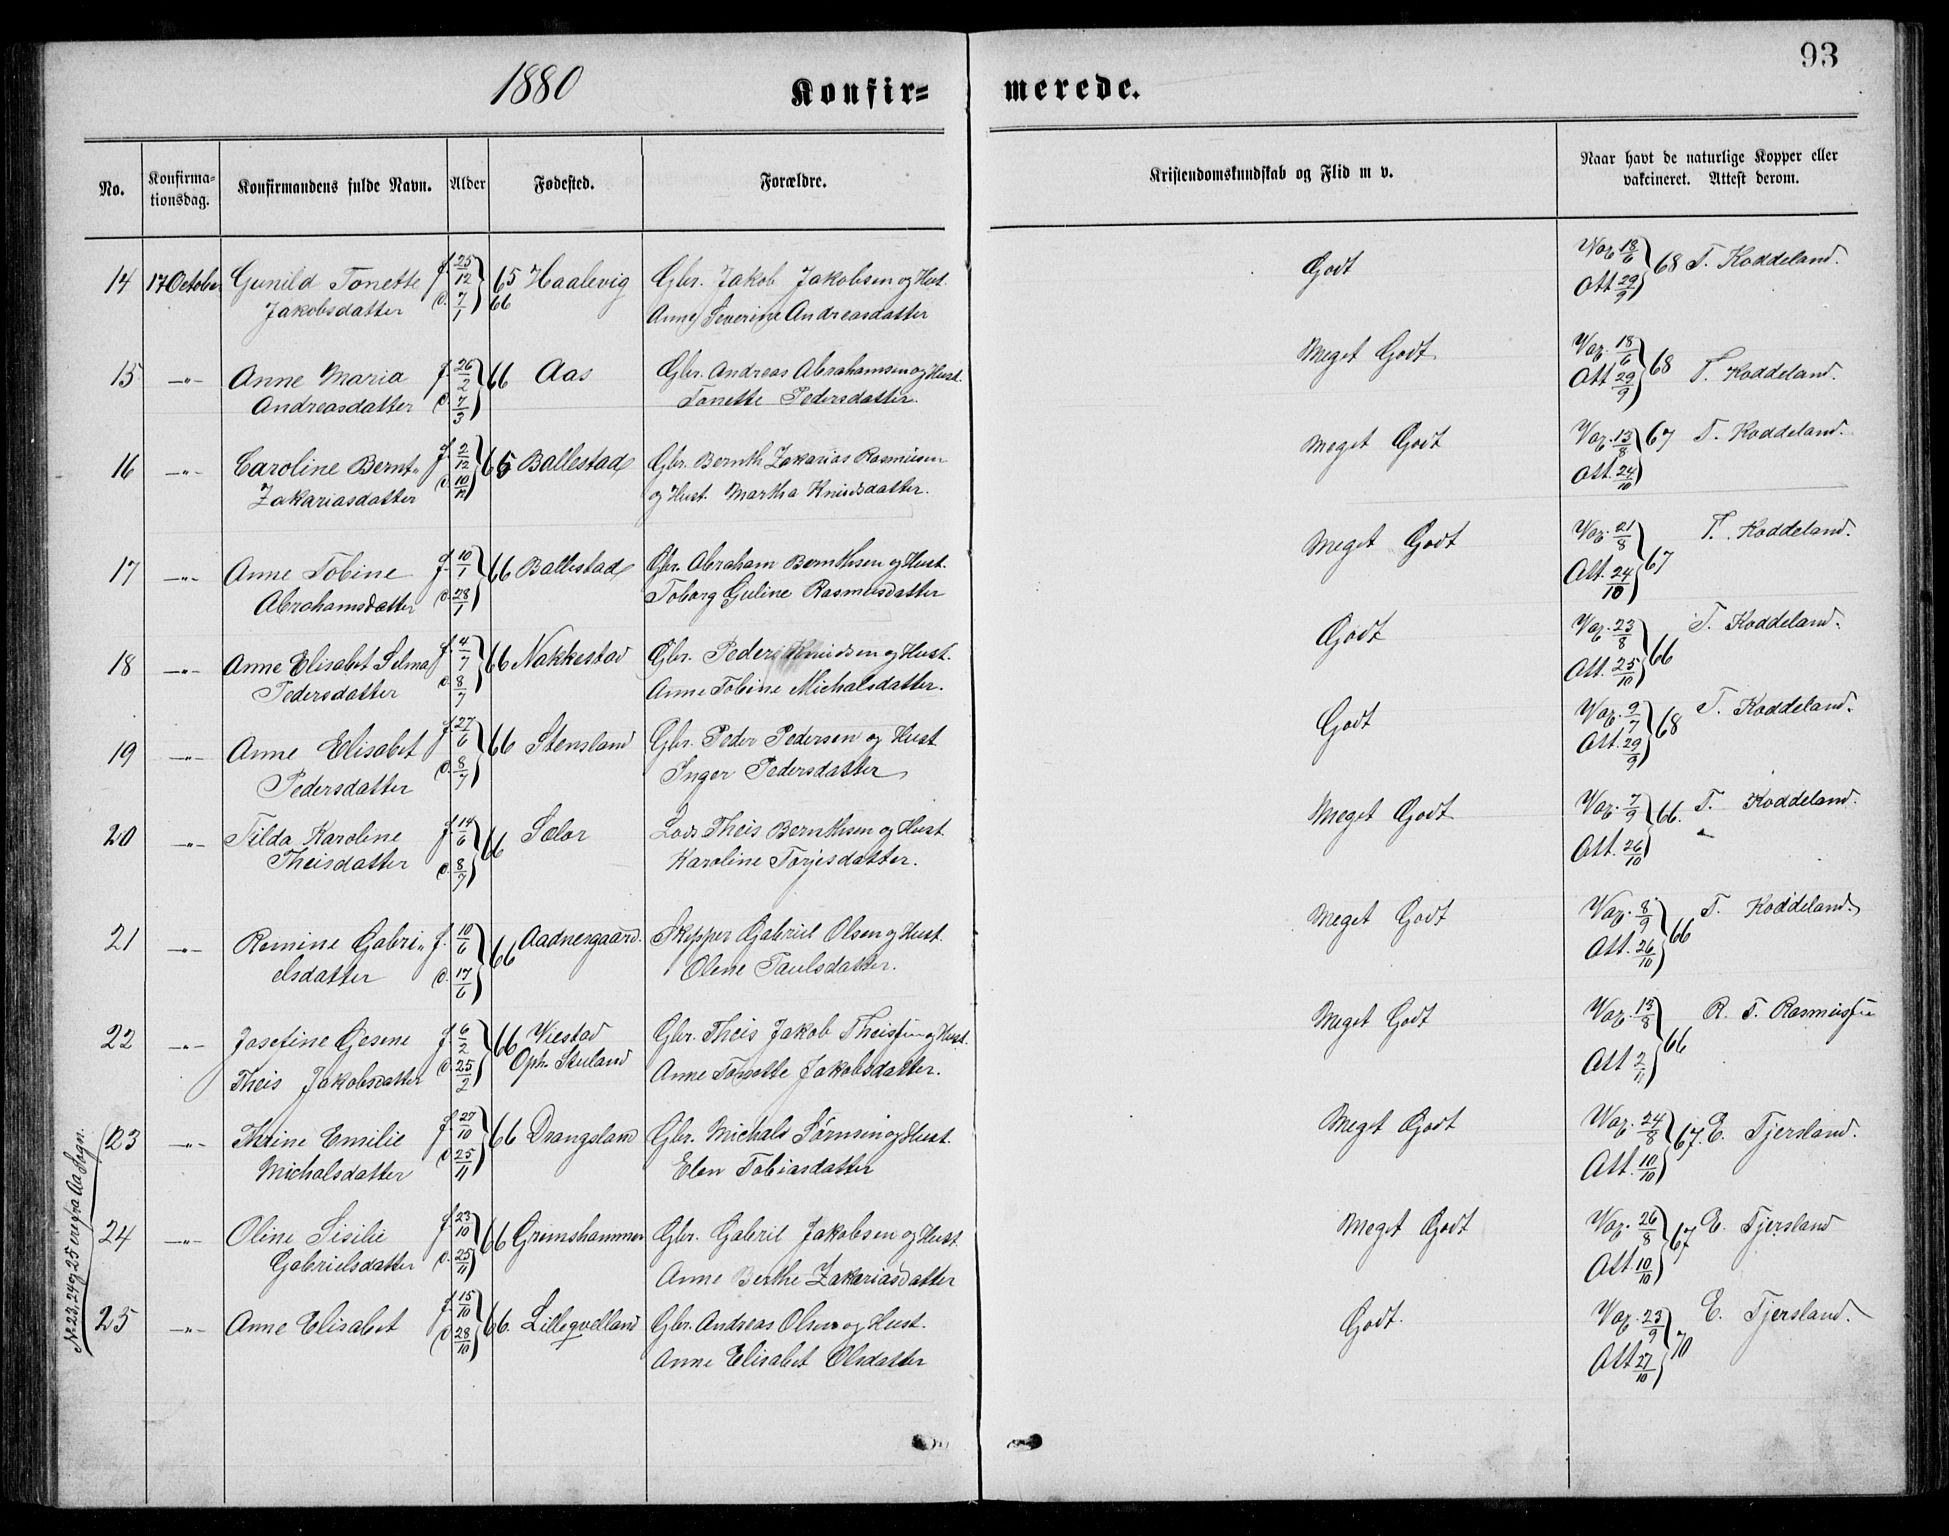 93
1880 Konfir= merede.
No. Konfirma-tionsdag. Konfirmandens fulde Navn. Alder Fødested. Forældre. Kristendomskundskab og Flid m v. Naar havt de naturlige Kopper eller vakcineret. Attest derom.
14 17 October Gunild Tonette f. 25/12 65 Haalevig Gbr. Jakob Jakobsen og Hust. Godt Vaz. 18/6 68 T. Koddeland.
Jakobsdatter d. 7/1 66 Anne Severine Andreasdatter Att 29/9
15 -"- Anne Maria f. 26/2 66 Aas Gbr. Andreas Abrahamsen og Hust. Meget Godt Vaz. 18/6 68 T. Koddeland.
Andreasdatter d. 7/3 Tonette Pedersdatter. Att 29/9
16 -"- Caroline Bernt" f. 2/12 65 Ballestad Gbr. Bernth Zakarias Rasmusen Meget Godt Vaz. 13/8 67 T. Koddeland.
Zakariasdatter d. 10/12 og Hust. Martha Knudsdatter. Att. 24/10
17 -"- Anne Tobine f. 10/1 66 Ballestad Gbr. Abraham Bernthsen og Hust. Meget Godt Vaz. 21/8 67 T. Koddeland.
Abrahamsdatter d. 28/1 Toborg Guline Rasmusdatter Att. 24/10
18 -"- Anne Elisabet Selma f. 4/7 66 Nakkestad Gbr. Peder Knudsen og Hust. Godt Vaz. 23/8 66 T. Koddeland.
Pedersdatter d. 8/7 Anne Tobine Michalsdatter. Att. 25/10
19 -"- Anne Elisabet f. 27/6 66 Stensland Gbr. Peder Pedersen og Hust Godt Vaz. 9/7 68 T. Koddeland.
Pedersdatter d. 8/7 Inger Pedersdatter Att. 29/9
20 -"- Tilda Karoline f. 14/6 66 Salor Lods Theis Bernthsen og Hust Meget Godt Vaz. 7/9 66. T. Koddeland.
Theisdatter d. 8/7 Karoline Torjesdatter. Att. 26/10
21 -"- Romine Gabri" f. 10/6 66 Aadnesgaard. Skipper Gabriel Olsen og Hust. Meget Godt Vaz. 8/9 66 T. Koddeland
elsdatter d. 17/6 Olene Paulsdatter. Att. 26/10
22 -"- Josefine Gesene f. 6/2 66 Viestad Gbr. Theis Jakob Theissen og Hust. Meget Godt Vaz. 13/8 66 R. T. Rasmussen
Theis Jakobsdatter d. 25/2 Oph. Stuland Anne Tonette Jakobsdatter. Att 2/11
23 -"- Thrine Emilie f. 27/10 66 Drangsland Gbr. Michals Sørnsen og Hust. Megt Godt Vaz. 24/8 67. E. Tjersland.
Michalsdatter d. 25/11 Elen Tobiasdatter Att. 10/10
24 -"- Oline Sisilie f. 23/10 66 Grimshammer Gbr. Gabriel Jakobsen og Hust Meget Godt Vaz. 26/8 67 E. Tjersland
Gabrielsdatter d. 25/11 Anne Berthe Zakariasdatter Att 10/10
25 -"- Anne Elisabet f. 15/10 66. Lilleqvelland Gbr. Andreas Olsen og Hust. Godt. Vaz. 23/9 70 E. Tjersland.
d. 28/10 Anne Elisabet Olsdatter Att 27/10
No 23, 24 og 25 ere fra Aa Sogn.